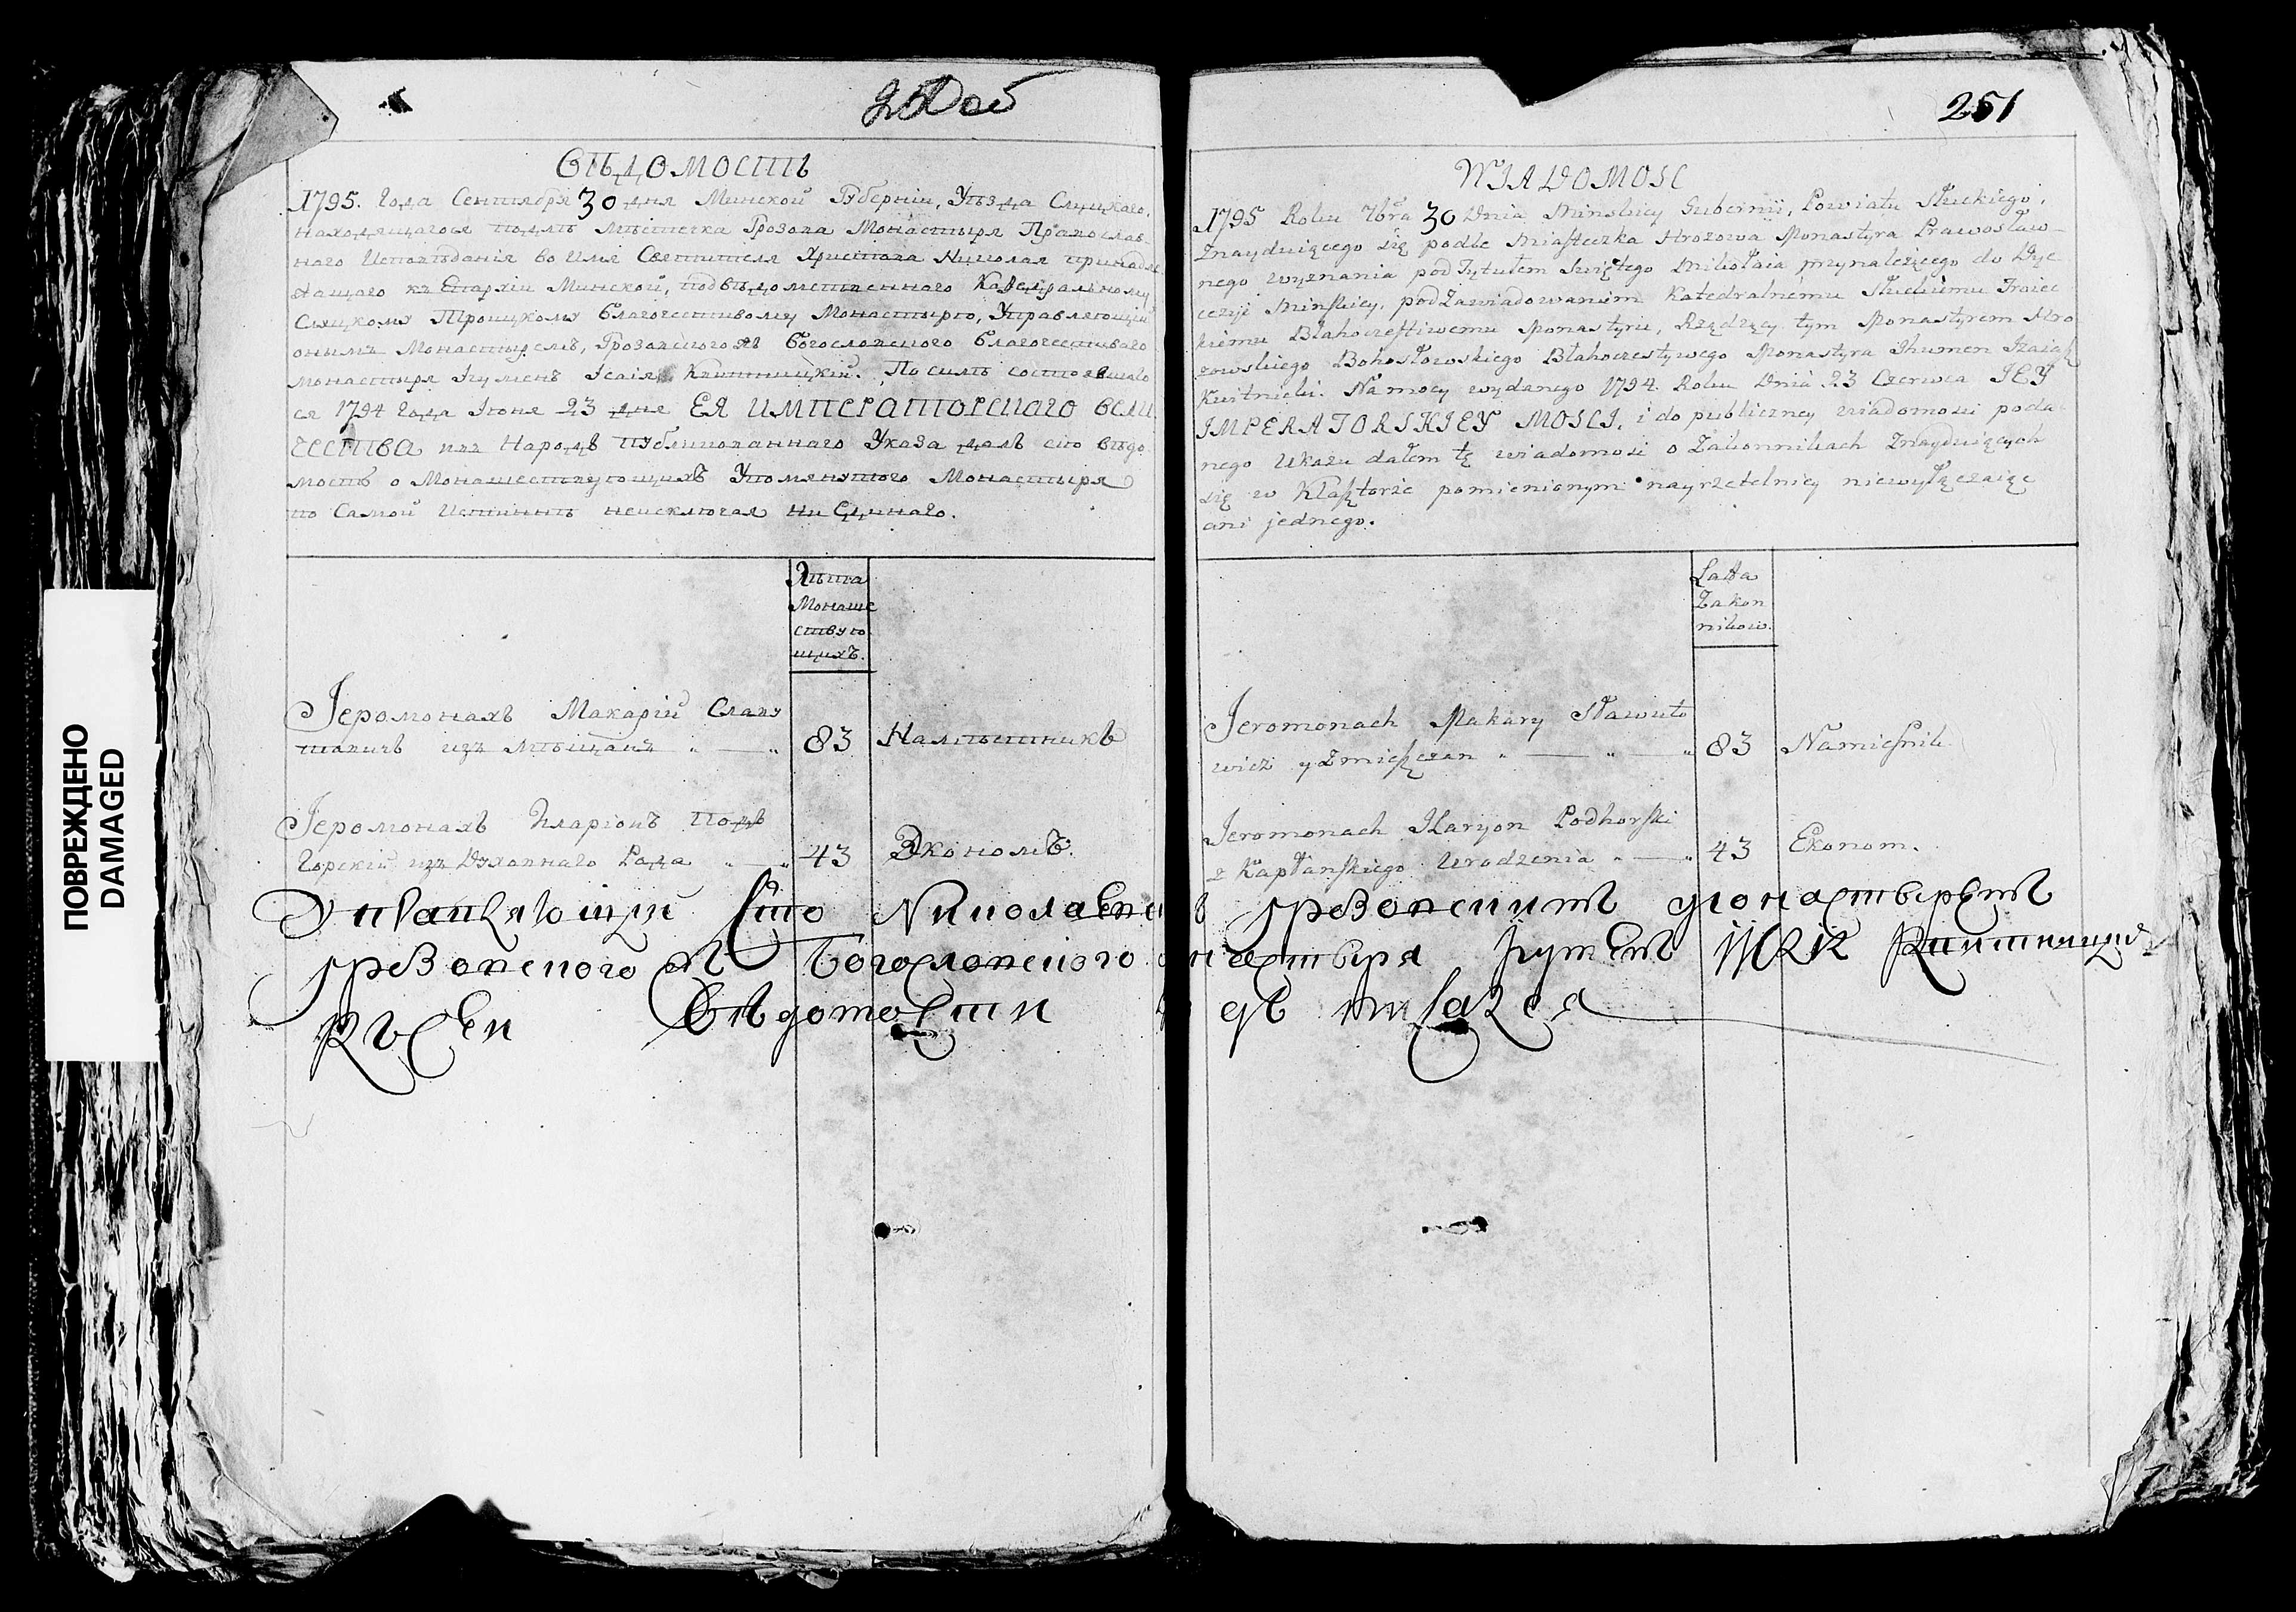 250 об
Вѣдомость
1795. Года Сентября 30 дня Минской Губерніи, Уѣзда Слуцкаго,
находящагося подлѣ Мѣстечка Грозова Монастыря Православ-
наго Исповѣданія во имя Святителя Христова Николая принадле
жащаго къ Епархіи Минской, подвѣдомственнаго Каѳедральному
Слуцкому Троицкому благочестивому Монастырю, Управляющій
онымъ Монастыремъ, Грозовскогожъ богословского благочестиваго
монастыря Игуменъ Ісаія Квитницкій. По силѣ состоявшаго
ся 1794 года Іюня 23 дня ЕЯ ИМПЕРАТОРСКАГО ВЕЛИ
ЧЕСТВА въ Народъ публикованнаго Указа далъ сію вѣдо
мость о Монашествующихъ Упомянутого Монастыря
по Самой Истиннѣ неисключая ни Единаго.
Лѣта
Монаше
ствую
щихъ.
Іеромонахъ Макарій Славу
товичъ изъ мѣщанъ 83 Намѣстникъ
Іеромонахъ Иларіонъ Подъ
Горскій изъ Духовнаго Рода 43 Экономъ.
251
WIADOMOSC
1795 Roku 7bra 30 Dnia Minskiey Gubernii, Powiatu Słuckiego,
Znayduiącego się podle Miasteczka Hrozowa Monastyra Prawosław-
nego wyznania pod Tytułem Swiętego Mikołaia przynależącego do Dye
cezyi Minskiey, pod Zawiadowaniem Katedralnemu Słuckiemu Troiec
kiemu Błahoczestiwemu Monastyru, Rządzący tym Monastyrem Hro
zowskiego Bohosłowskiego Błahoczestywego Monastyra Ihumen Izaiasz
Kwitnicki. Na mocy wydanego 1794. Roku Dnia 23 Czerwca JEY
IMPERATORSKIEY MOSCI, i do publiczney wiadomosci poda-
nego Ukazu dałem tę wiadomosc o Zakonnikach Znayduiących
się w Klasztorze pomienionym nayrzetelniey niewyłączaiąc
ani jednego.
Latta
Zakon
nikow.
Jeromonach Makary Sławuto
wicz z Mieszczan 83 Namiesnik
Jeromonach Ilaryon Podhorski
z Kapłanskiego Urodzenia 43 Ekonom.
Управляющій Свято Николаевскимъ Грозовскимъ монастыремъ
Грозовского жъ Богословского монастыря Игуменъ Ісаія Квитницкій
Къ сей Вѣдомости подписался
ПОВРЕЖДЕНО
DAMAGED